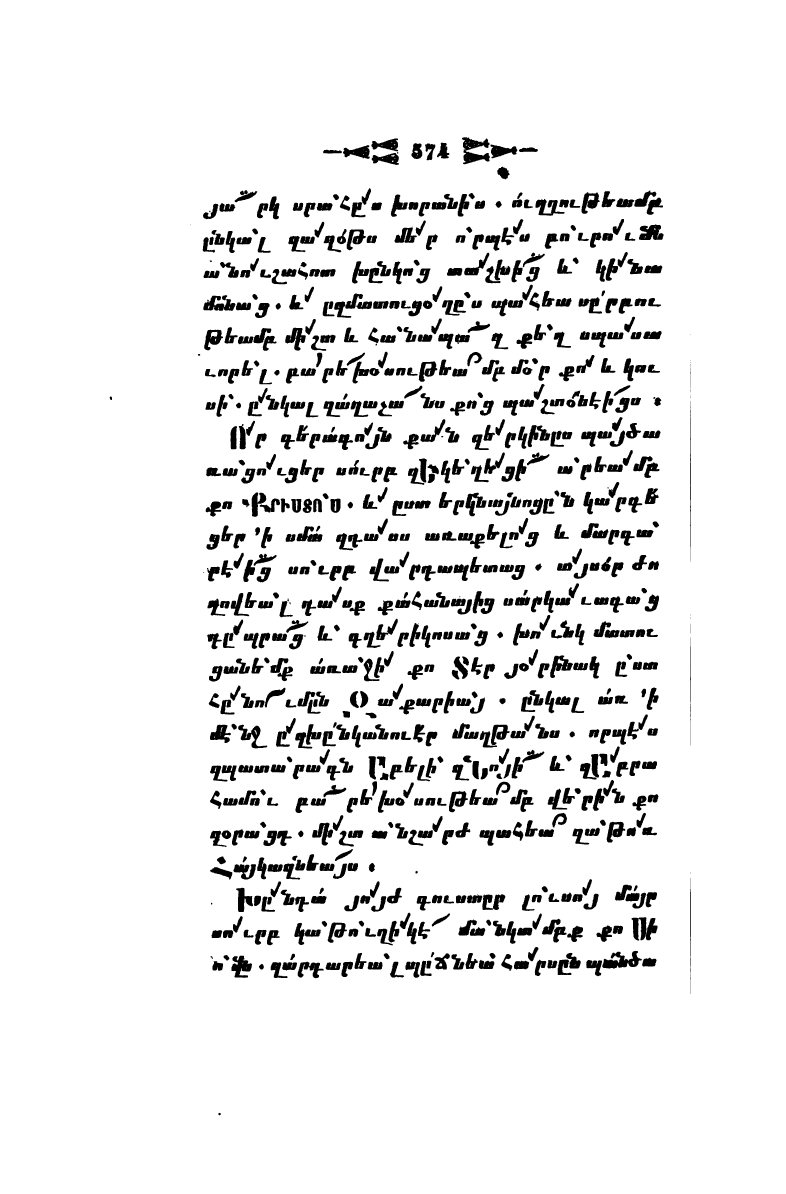 574
յարկ սրահըս խորանիս. ուղղութեամբ
ընկալ զաղօթս մեր որպէս բուրումն
անուշահոտ խընկոց տաշխից և կինա
մոնաց. և ըզմատուցօղըս պահեա սըրբու
թեամբ միշտ և հանապազ քեզ սպասա
ւորել. բարեխօսութեամբ մօր քո և կու
սի. ընկալ զաղաչանս քոց պաշտօնէիցս ։
Որ գերագոյն քան զերկինըս պայծա
ռացուցեր սուրբ զԵկեղեցի արեամբ
քո ՔՐԻՍՏՈՍ. և ըստ երկնայնոցըն կարգե
ցեր ՚ի սմա զդասս առաքելոց և մարգա
րէից սուրբ վարդապետաց. այսօր ժո
ղովեալ դասք քահանայից սարկաւագաց
դըպրաց և գղերիկոսաց. խունկ մատու
ցանեմք առաջի քո Տէր յօրինակ ըստ
հընումն Զաքարիայ. ընկալ առ ՚ի
մէնջ ըզխընկանուէր մաղթանս. որպէս
զպատարագն Աբելի զՆոյի և զԱբրա
համու. բարեխօսութեամբ վերին քո
զօրացդ. միշտ անշարժ պահեա զաթոռ
Հայկազնեայս ։
Խընդա յոյժ դուստըր լուսոյ մայր
սուրբ կաթուղիկէ մանկամբք քո Սի
ոն. զարդարեալ պըճնեա հարսըն պանծա